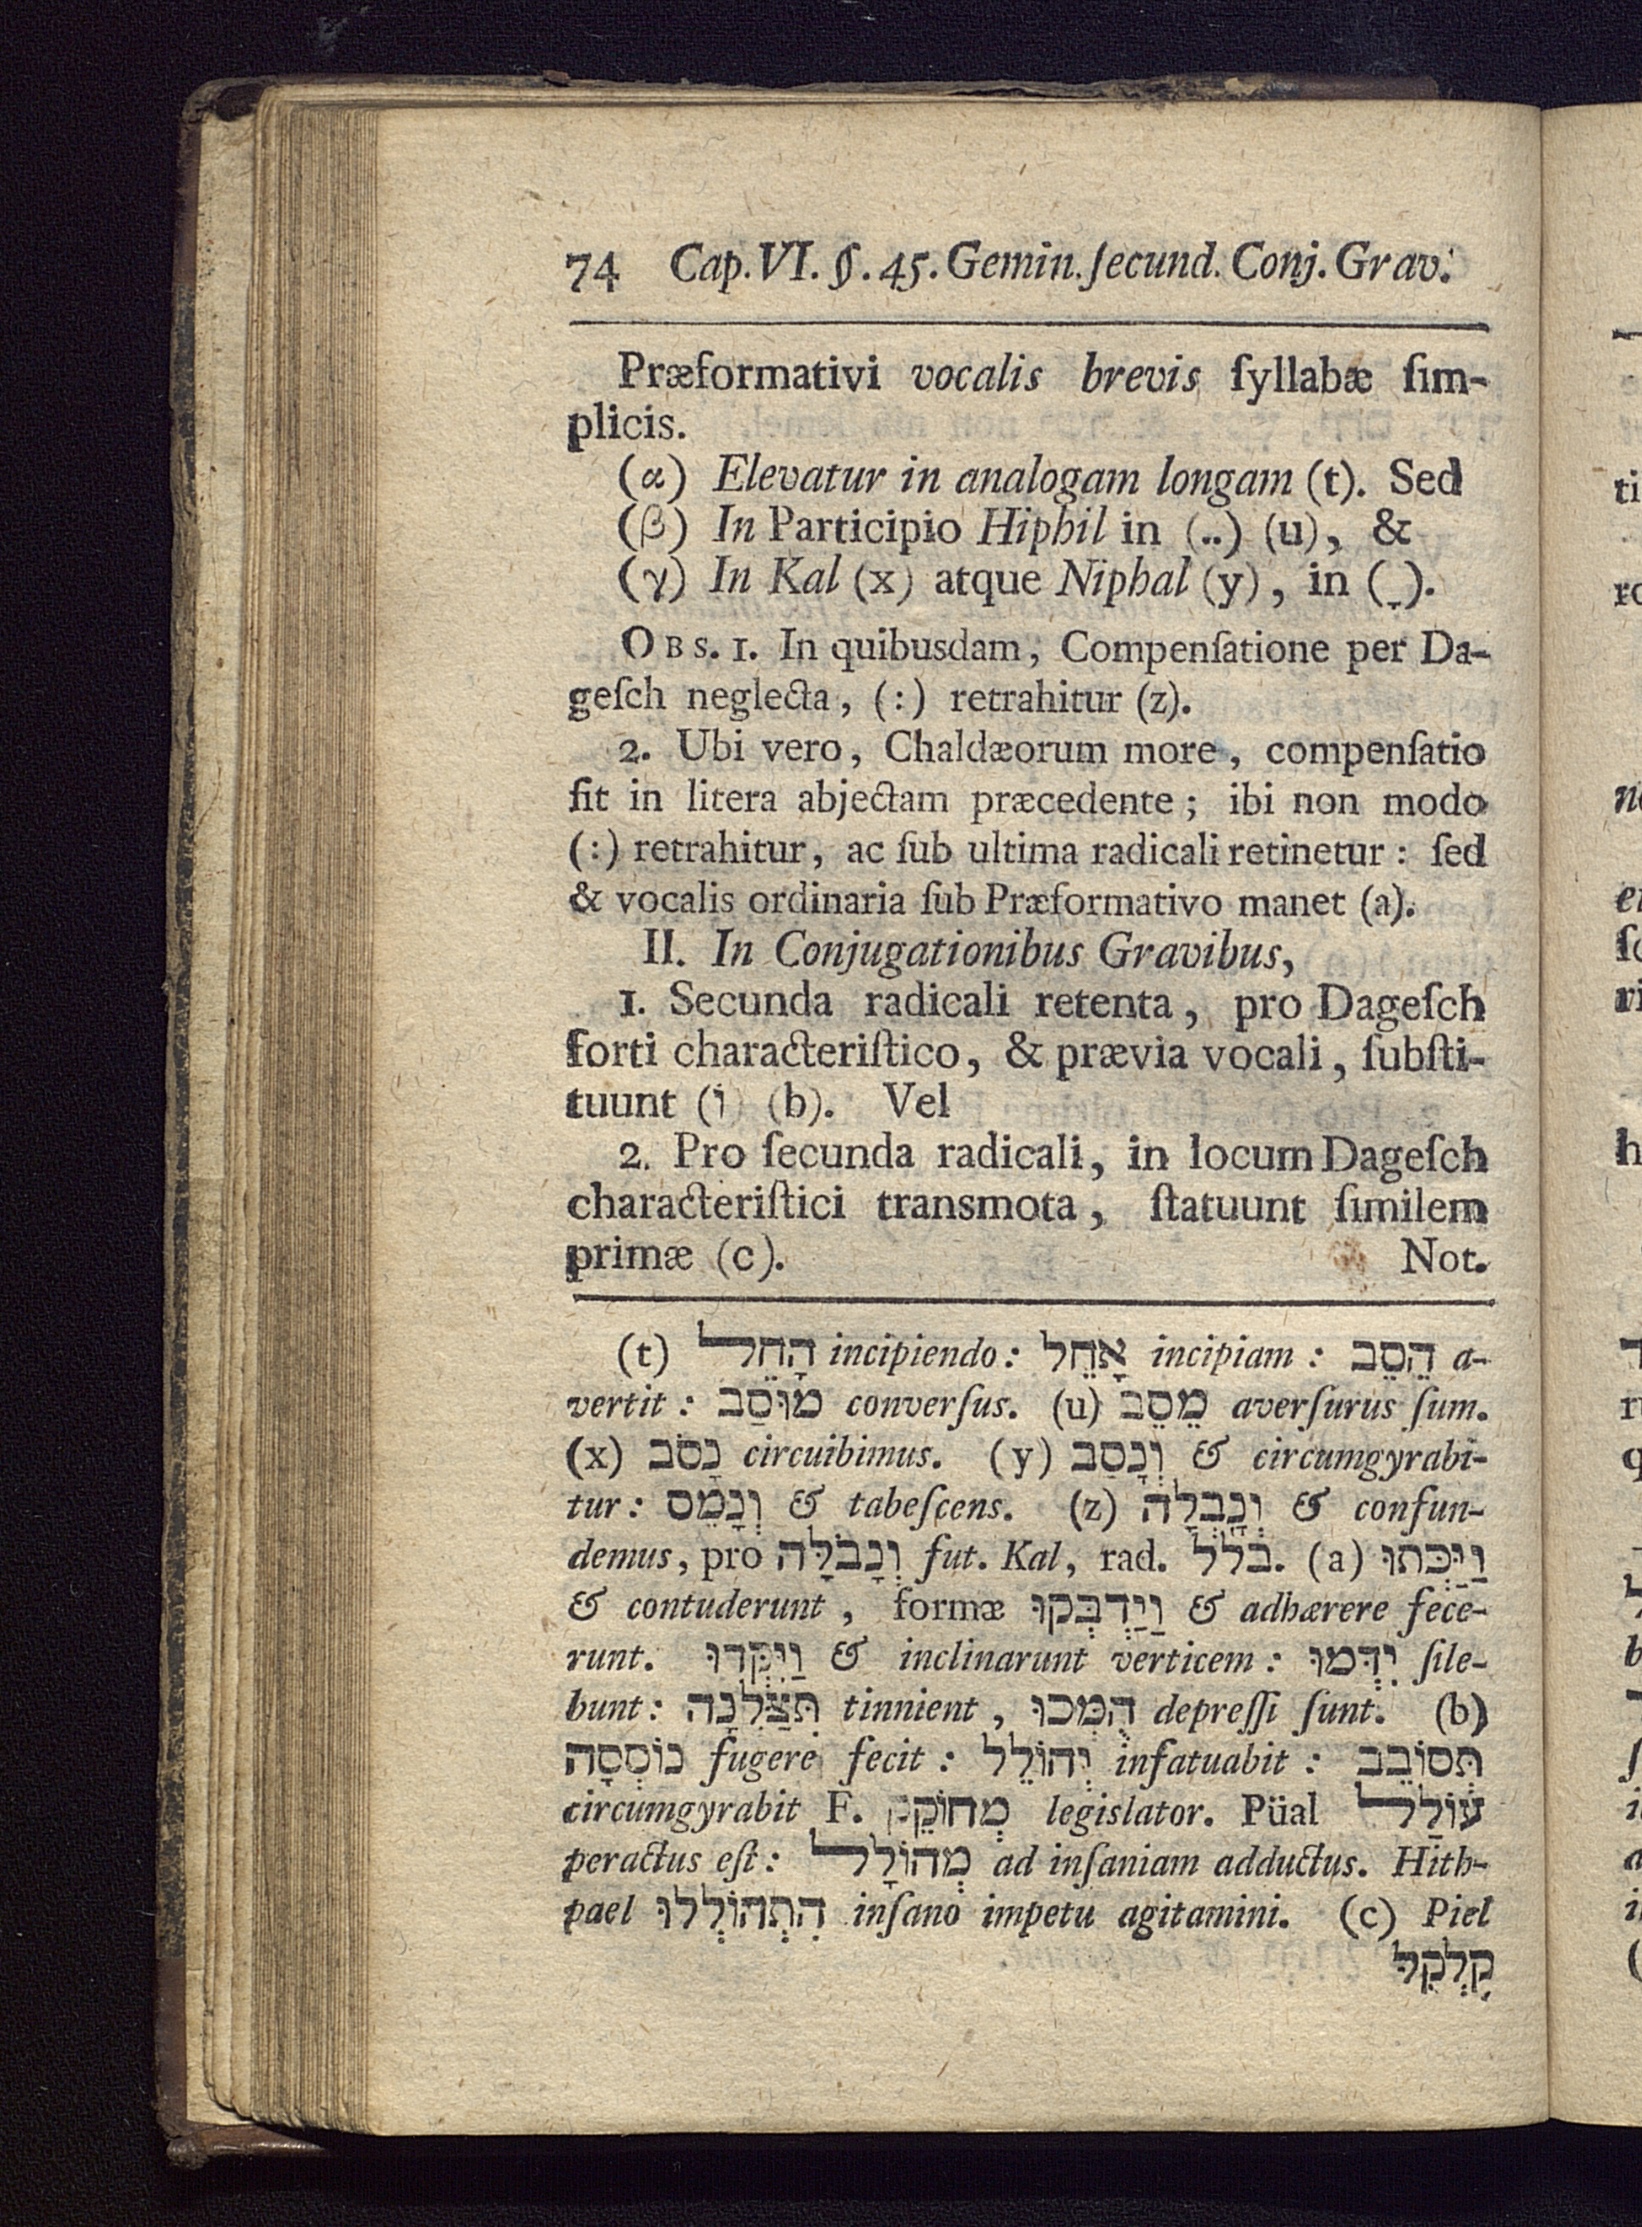 74 Cap. VI. §. 45. Gemin. ſecund. Conj. Grav.
Præformativi vocalis brevis ſyllabæ ſim-
plicis.
(α) Elevatur in analogam longam (t). Sed
(β) In Participio Hiphil in (..) (u), &
(γ) In Kal (x) atque Niphal (y), in (ָ).
OBS. 1. In quibusdam, Compenſatione per Da-
geſch neglecta, (:) retrahitur (z).
2. Ubi vero, Chaldæorum more, compenſatio
fit in litera abjectam præcedente; ibi non modo
(:) retrahitur, ac ſub ultima radicali retinetur: ſed
& vocalis ordinaria ſub Præformativo manet (a).
II. In Conjugationibus Gravibus,
1. Secunda radicali retenta, pro Dageſch
forti characteriſtico, & prævia vocali, ſubſti-
tuunt (וֹ) (b). Vel
2. Pro ſecunda radicali, in locum Dageſch
characteriſtici transmota, ſtatuunt ſimilem
primæ (c). Not.
(t) הָחֵל incipiendo: אָחֵל incipiam: הֵסֵב a-
vertit: מוּסַב converſus. (u) מֵסֵב averſurus ſum.
(x) נָסֹב circuibimus. (y) וְנָסַב & circumgyrabi-
tur: וְנָמֵס & tabeſcens. (z) וְנָבְלָה & confun-
demus, pro וְנָבֹלָּה fut. Kal, rad. בלל. (a) וַיַּכְּתוּ
& contuderunt, formæ וַיַדְבְּקוּ & adhærere fece-
runt. וַיִּקְּדוּ & inclinarunt verticem: יִדְּמוּ ſile-
bunt: תִּצַּלְנָה tinnient, הֻמְּכוּ depreſſi ſunt. (b)
נוֹסְסָה fugere fecit: יְהוֹלֵל infatuabit: תְּסוֹבֵב
circumgyrabit F. מְחוֹקֵק legislator. Püal עוֹלַל
peractus eſt: מְהוֹלָל ad inſaniam adductus. Hith-
pael הִתְהוֹלְלוּ inſano impetu agitamini. (c) Piel